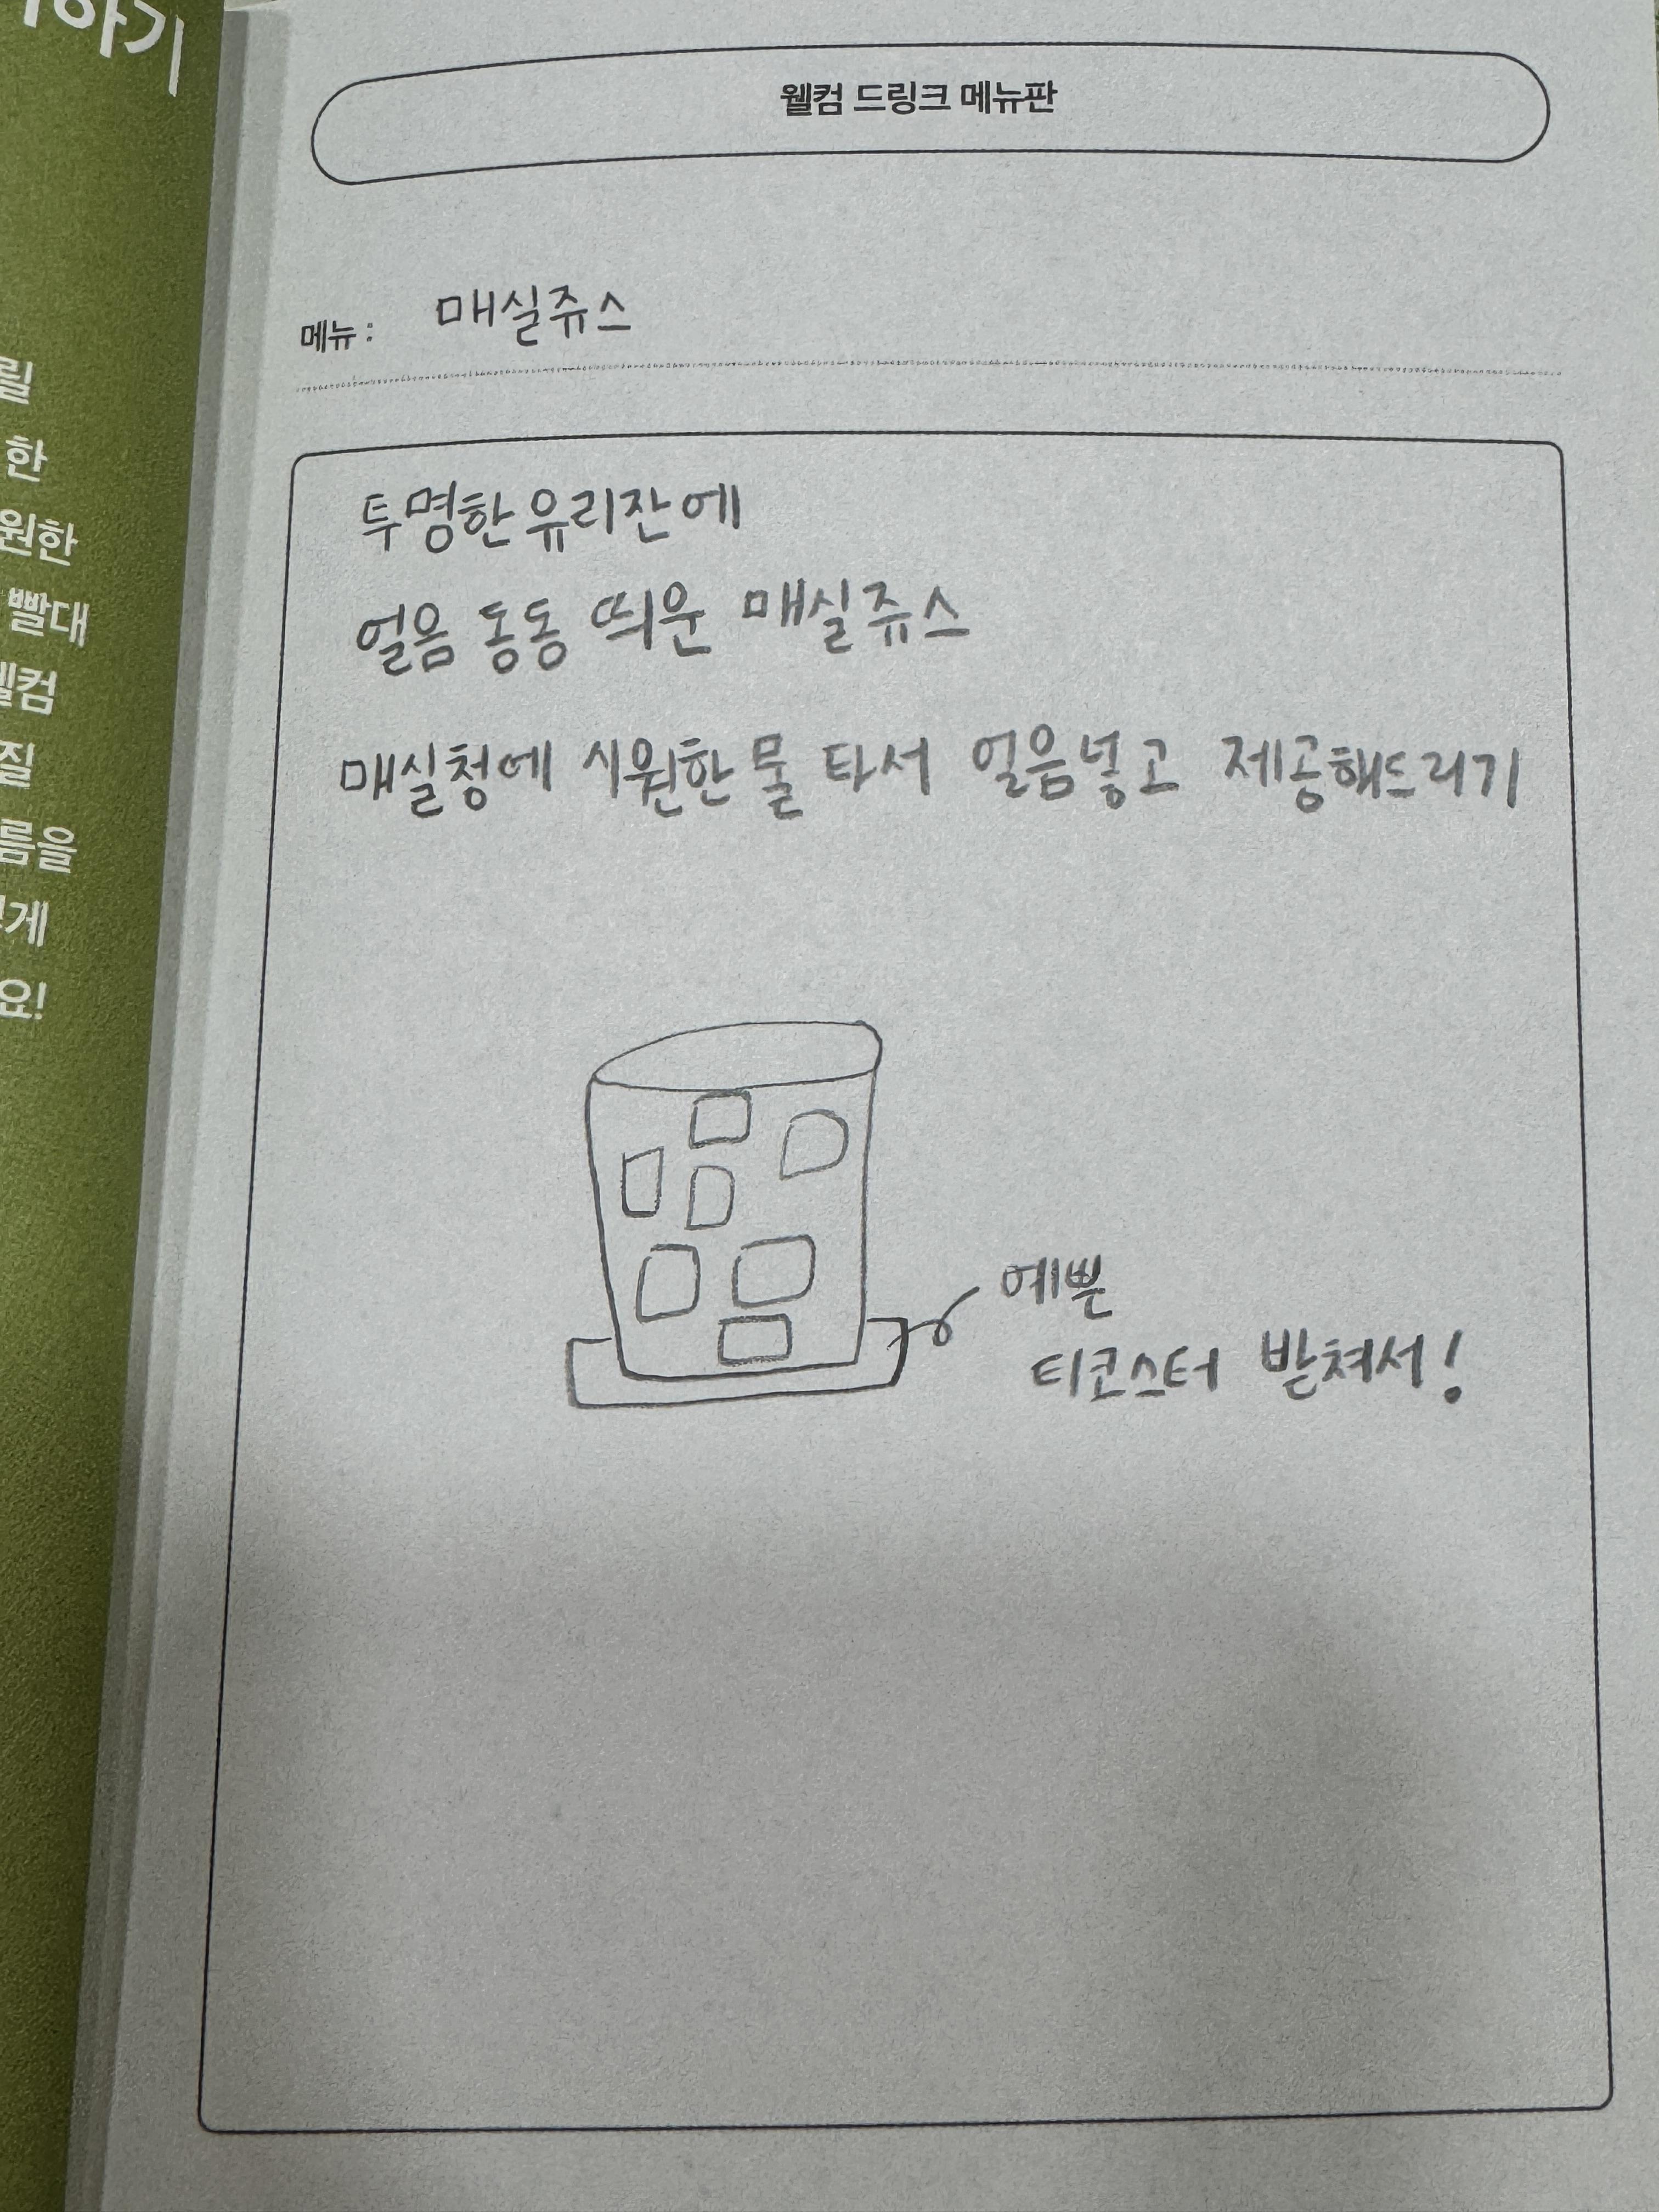 하기
릴
한
원한
빨대
웰컴
질
름을
게
요!
웰컴 드링크 메뉴판
메뉴: 매실쥬스
투명한 유리잔에
얼음 동동 띄운 매실쥬스
매실청에 시원한 물 타서 얼음넣고 제공해드리기
예쁜
티코스터 받쳐서!